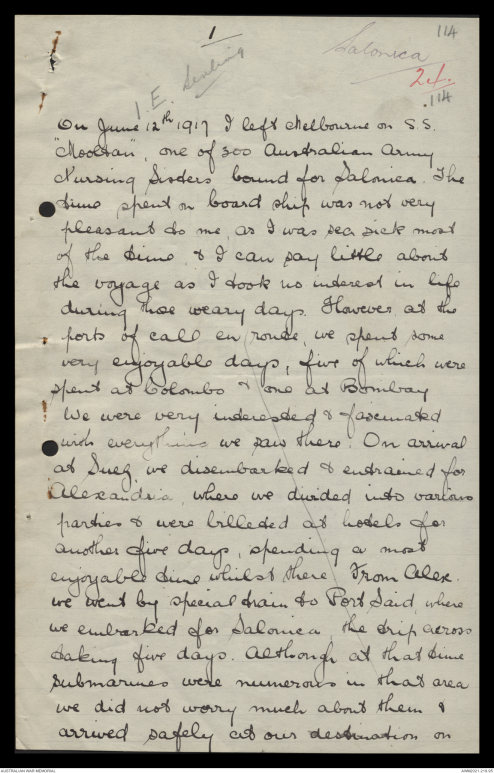 1
114
Salonica
24.
.114
I. E. Senling
On June 12th 1917 I left Melbourne on S.S.
"Mooltan", one of 300 Australian Army
Nursing Sisters bound for Salonica. The
time spent on board ship was not very
pleasant to me, as I was sea sick most
of the time, & I can say little about
the voyage as I took no interest in life
during those weary days. However, at the
ports of call en route, we spent some
very enjoyable days, five of which were
spent at Colombo & one at Bombay
We were very interested & fascinated
with everything we saw there. On arrival
at Suez, we disembarked & entrained for
Alexandria, where we divided into various
parties & were billeted at hotels for
another five days, spending a most
enjoyable time whilst there. From Alex.
we went by special train to Port Said, where
we embarked for Salonica, the trip across
taking five days. Although at that time
submarines were numerous in that area
we did not worry much about them &
arrived safely at our destination on
AUSTRALIAN WAR MEMORIAL